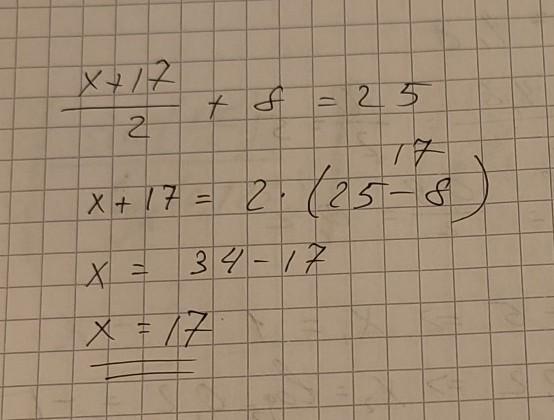 x+17
2 + 8 = 25
17
x+17 = 2·(25-8)
x = 34-17
x = 17